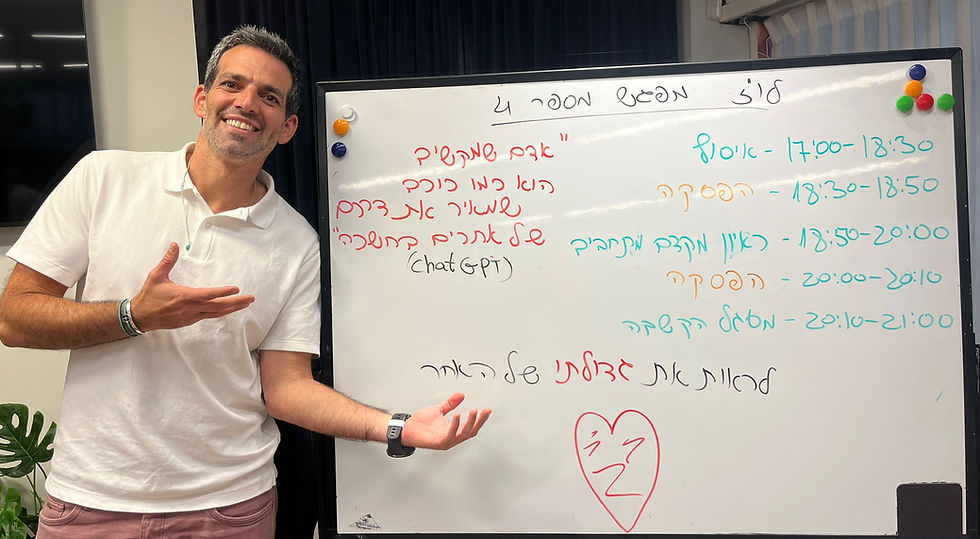 לו"ז מפגש מספר 4
17:00-18:30 - איסוף
18:30-18:50 - הפסקה
18:50-20:00 - ראיון מקדם מתחביב
20:00-20:10 - הפסקה
20:10-21:00 - מעגל הקשבה
"אדם שמקשיב
הוא כמו כוכב
שמאיר את דרכם
של אחרים בחשכה"
(ChatGPT)
לראות את גדולתו של האחר